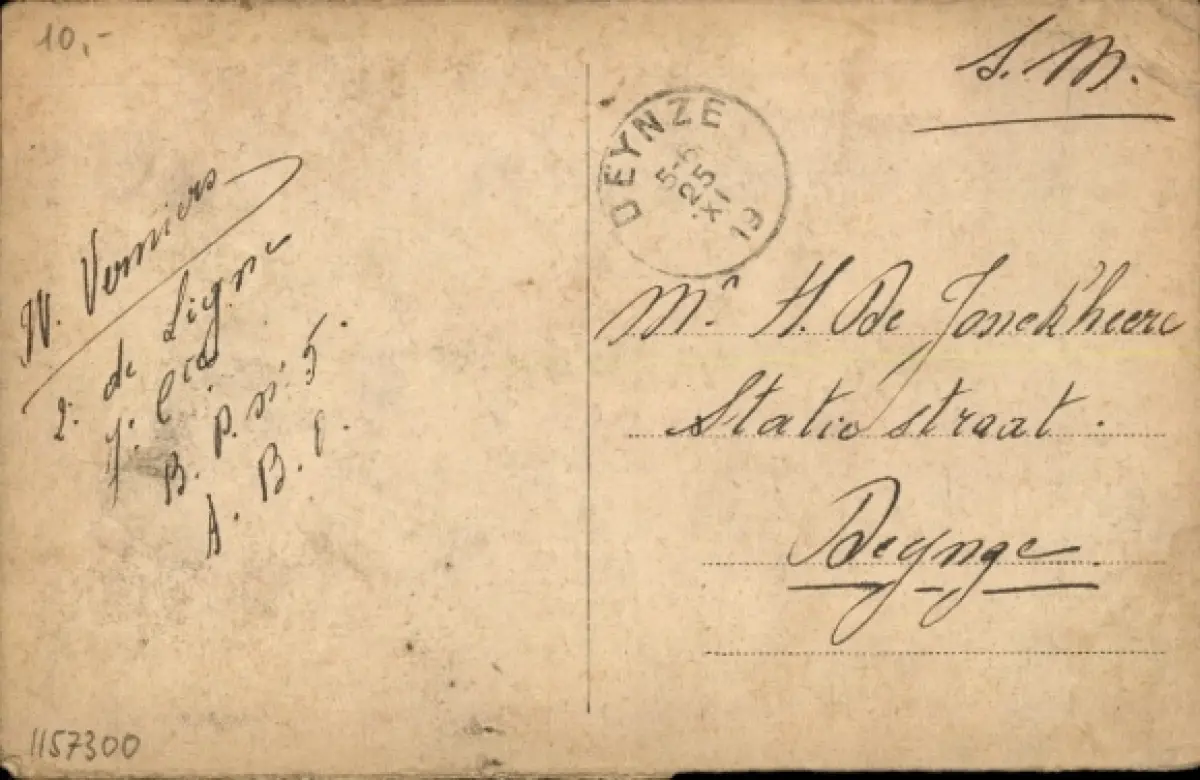 10,-
S. M.
DEYNZE
5-6
25
XI
19
W. Verniers
2. de Ligne
7. Cie
B. P. n. 5.
A. B. E.
Mr. H. De Jonckheere
Statiostraat.
Deynze
1157300